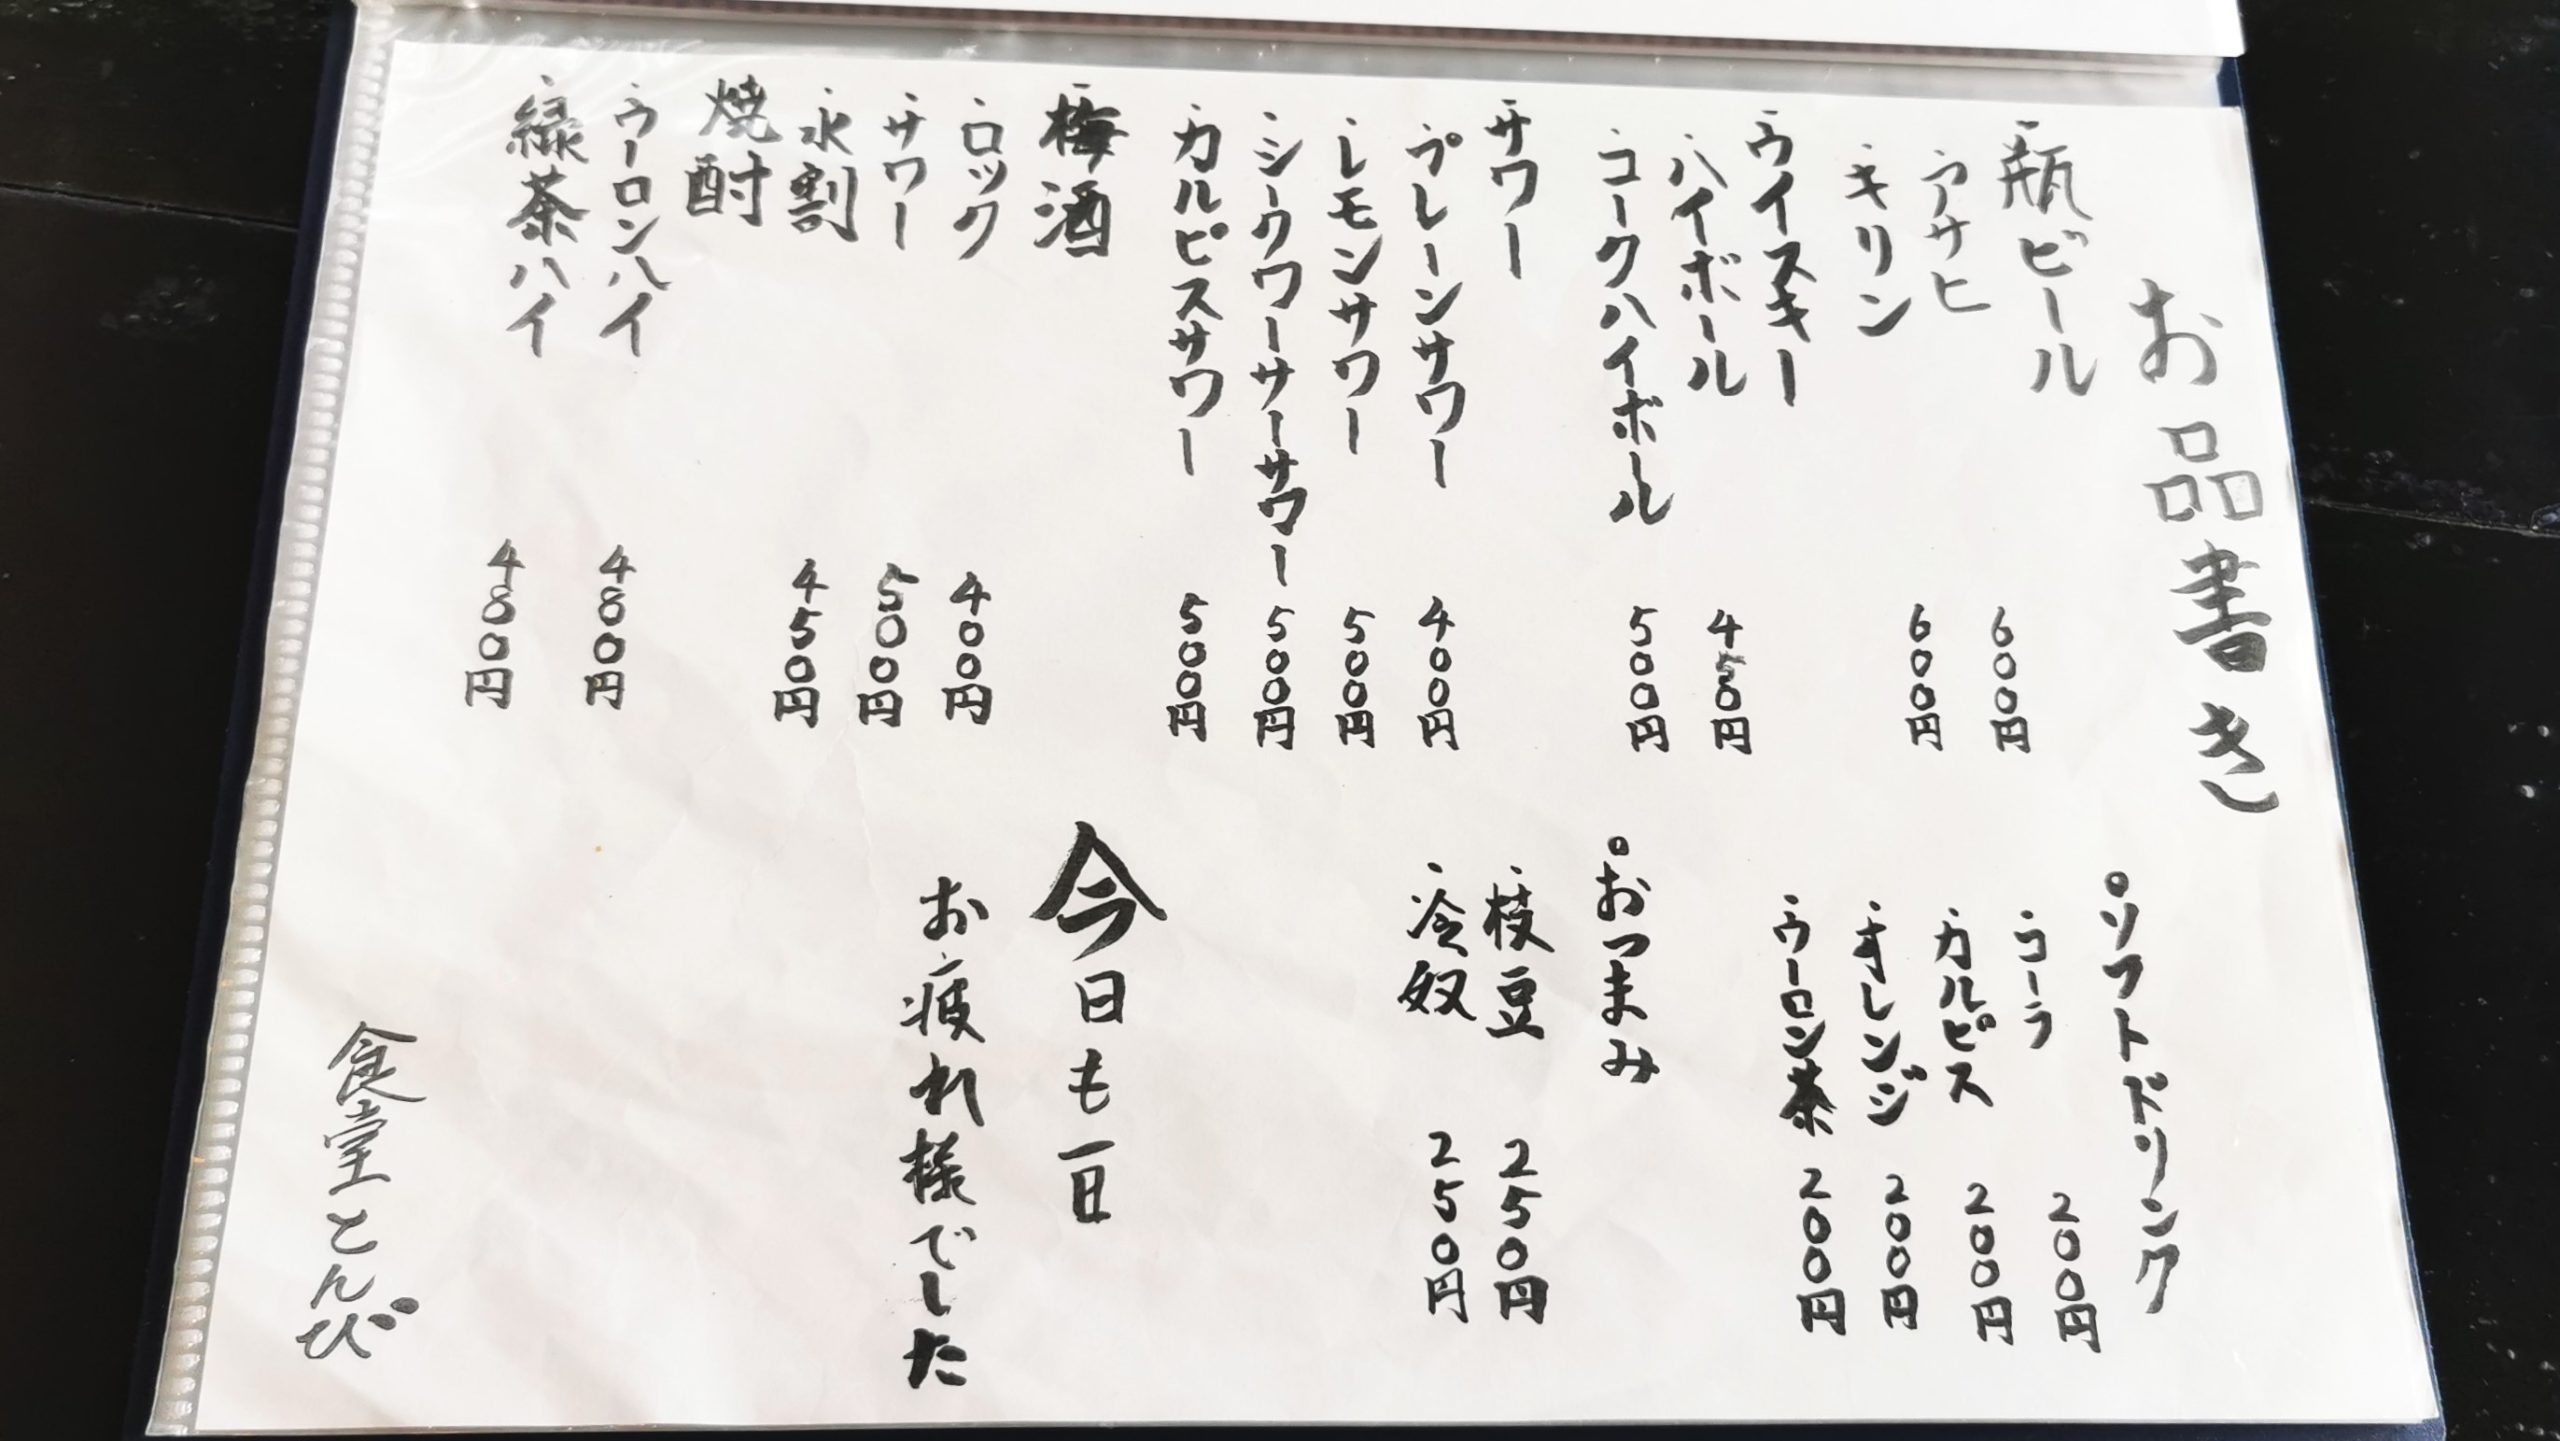 お品書き
・瓶ビール
・アサヒ 600円
・キリン 600円
・ウイスキー
・ハイボール 450円
・コークハイボール 500円
・サワー
・プレーンサワー 400円
・レモンサワー 500円
・シークワーサーサワー 500円
・カルピスサワー 500円
・梅酒
・ロック 400円
・サワー 500円
・水割 450円
焼酎
・ウーロンハイ 480円
・緑茶ハイ 480円
。ソフトドリンク
・コーラ 200円
・カルピス 200円
・オレンジ 200円
・ウーロン茶 200円
。おつまみ
・枝豆 250円
・冷奴 250円
今日も一日
お疲れ様でした
食堂とんび